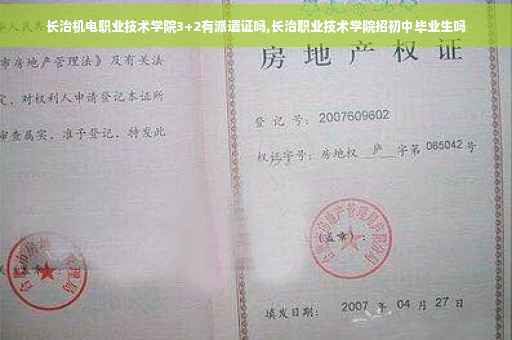 长治机电职业技术学院3+2有派遣证吗,长治职业技术学院招初中毕业生吗
华人民共
市房地产管理法》及有关法
定,对权利人申请登记本证所
审查属实,准予登记,特发此
房地产权
登记号:2007609602
权证字号:房地权 庐 字第 085042 号
(盖章):
填发日期: 2007 年 04 月 27 日